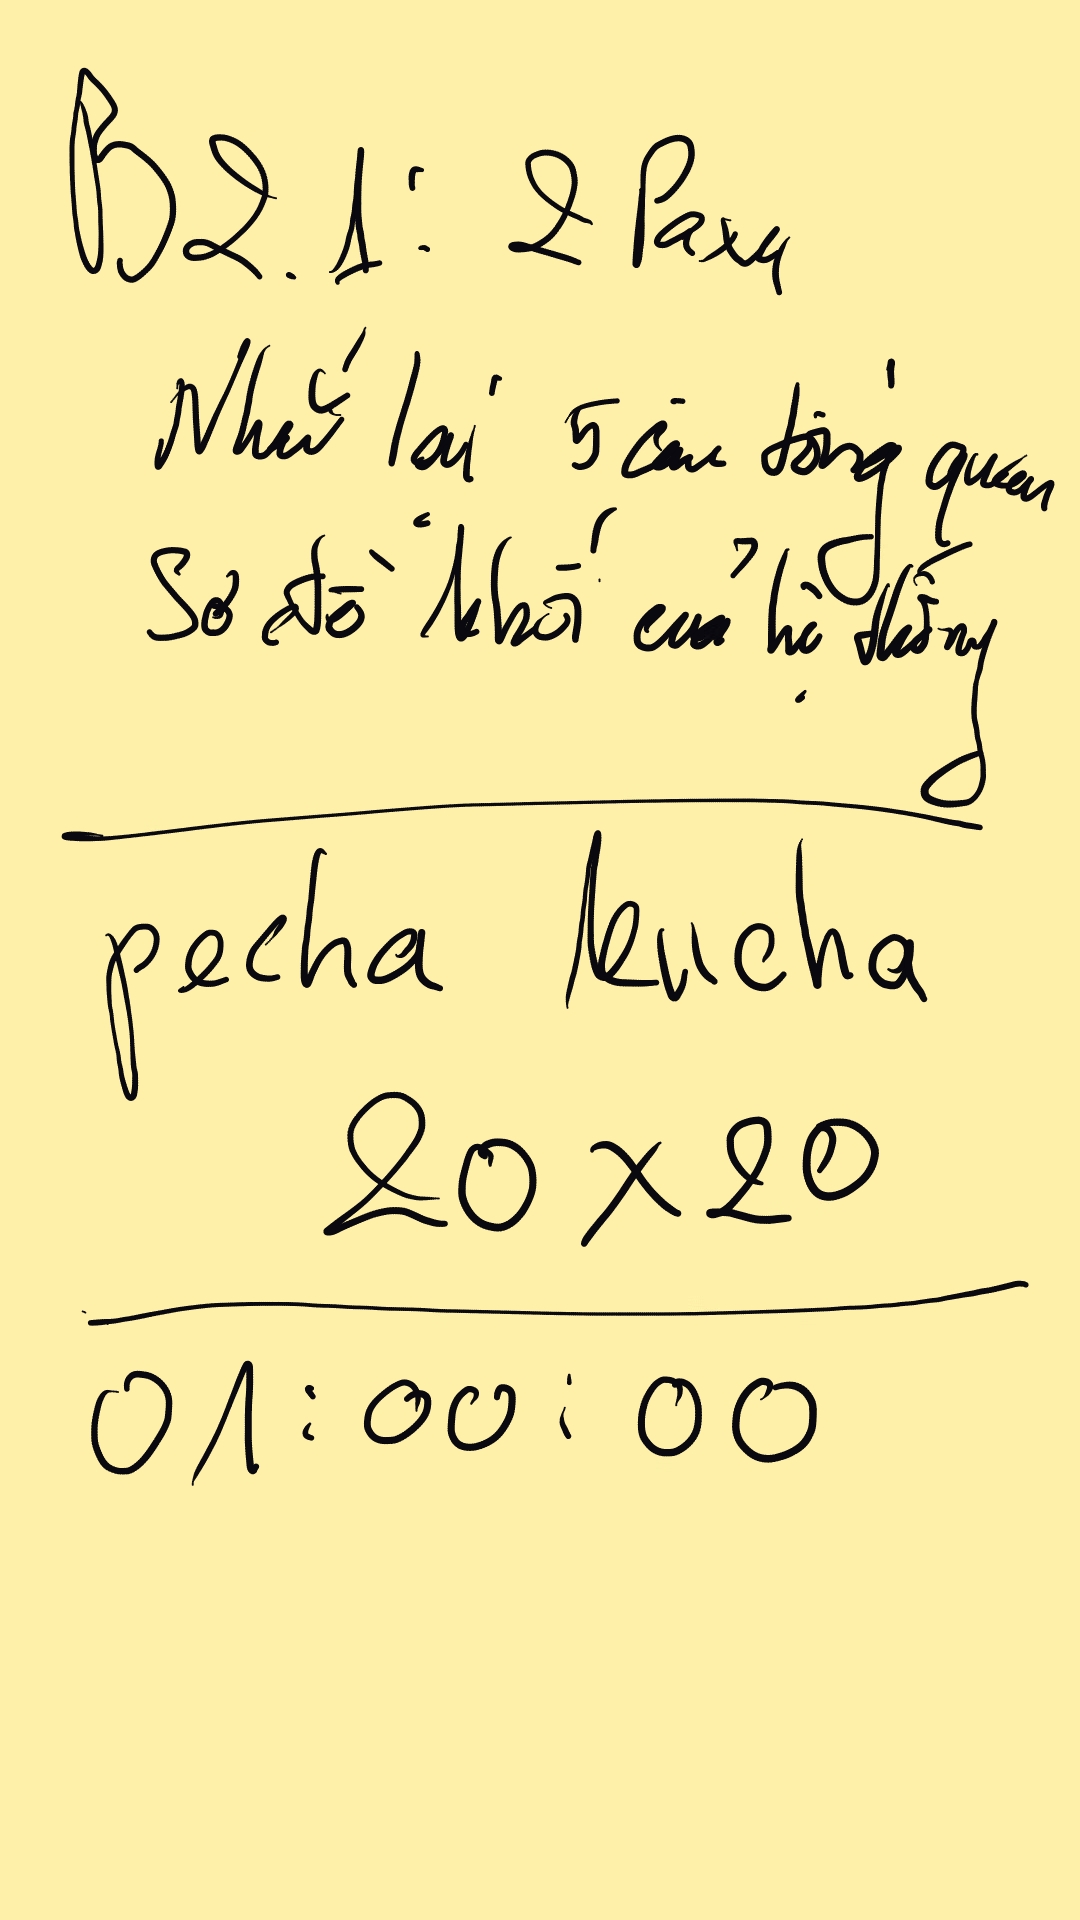 B2.1: 2 Paxy
Nhắc lại 5 câu tổng quan
Sơ đồ khối của hệ thống
pecha kucha
20 x 20
01:00:00